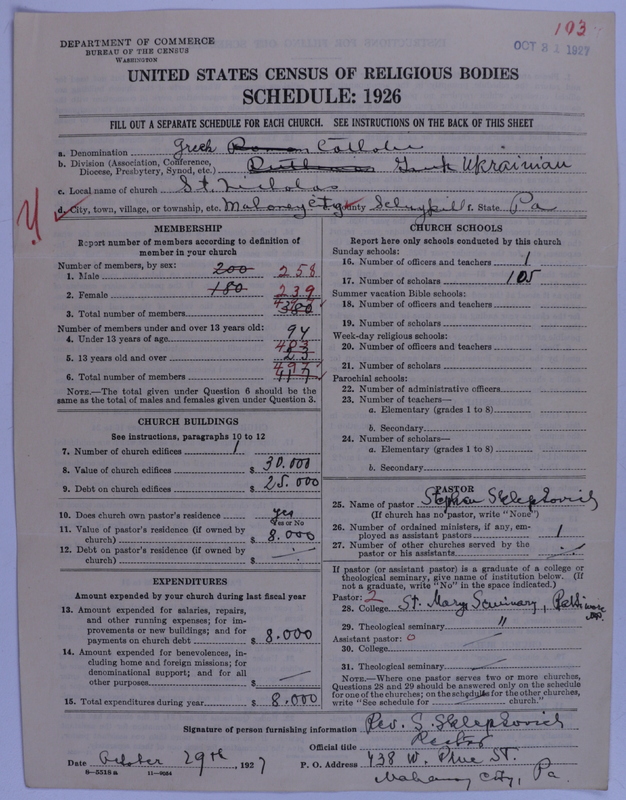 103
DEPARTMENT OF COMMERCE
BUREAU OF THE CENSUS
WASHINGTON
OCT 31 1927
UNITED STATES CENSUS OF RELIGIOUS BODIES
SCHEDULE: 1926
FILL OUT A SEPARATE SCHEDULE FOR EACH CHURCH. SEE INSTRUCTIONS ON THE BACK OF THIS SHEET
a. Denomination Greek Roman Catholic
b. Division (Association, Conference, Diocese, Presbytery, Synod, etc.) Greek Ukrainian
c. Local name of church St. Nicholas
d. City, town, village, or township, etc. Mahoney City e. County Schuylkill f. State Pa
MEMBERSHIP
Report number of members according to definition of
member in your church
Number of members, by sex:
1. Male 200 258
2. Female 180 239
3. Total number of members 380
Number of members under and over 13 years old:
4. Under 13 years of age 94
5. 13 years old and over 403
6. Total number of members 497
NOTE.—The total given under Question 6 should be the
same as the total of males and females given under Question 3.
CHURCH BUILDINGS
See instructions, paragraphs 10 to 12
7. Number of church edifices 1
8. Value of church edifices $ 30.000
9. Debt on church edifices $ 25.000
10. Does church own pastor's residence yes
Yes or No
11. Value of pastor's residence (if owned by
church) $ 8.000
12. Debt on pastor's residence (if owned by
church) $
EXPENDITURES
Amount expended by your church during last fiscal year
13. Amount expended for salaries, repairs,
and other running expenses; for im-
provements or new buildings; and for
payments on church debt $ 8.000
14. Amount expended for benevolences, in-
cluding home and foreign missions; for
denominational support; and for all
other purposes $
15. Total expenditures during year $ 8.000
CHURCH SCHOOLS
Report here only schools conducted by this church
Sunday schools:
16. Number of officers and teachers 1
17. Number of scholars 105
Summer vacation Bible schools:
18. Number of officers and teachers
19. Number of scholars
Week-day religious schools:
20. Number of officers and teachers
21. Number of scholars
Parochial schools:
22. Number of administrative officers
23. Number of teachers—
a. Elementary (grades 1 to 8)
b. Secondary
24. Number of scholars—
a. Elementary (grades 1 to 8)
b. Secondary
PASTOR
25. Name of pastor Stephan Sklepkovich
(If church has no pastor, write "None")
26. Number of ordained ministers, if any, em-
ployed as assistant pastors 1
27. Number of other churches served by the
pastor or his assistants
If pastor (or assistant pastor) is a graduate of a college or
theological seminary, give name of institution below. (If
not a graduate, write "No" in the space indicated.)
Pastor: 2
28. College St. Mary Seminary,
29. Theological seminary "
Assistant pastor: 0
30. College
31. Theological seminary
NOTE.—Where one pastor serves two or more churches,
Questions 28 and 29 should be answered only on the schedule
for one of the churches; on the schedules for the other churches,
write "See schedule for church."
Signature of person furnishing information Rev. S. Sklepkovich
Official title Rector
Date October 29th, 1927 P. O. Address 438 W. Pine St.
8-5518a 11-9054 Mahanoy City, Pa.